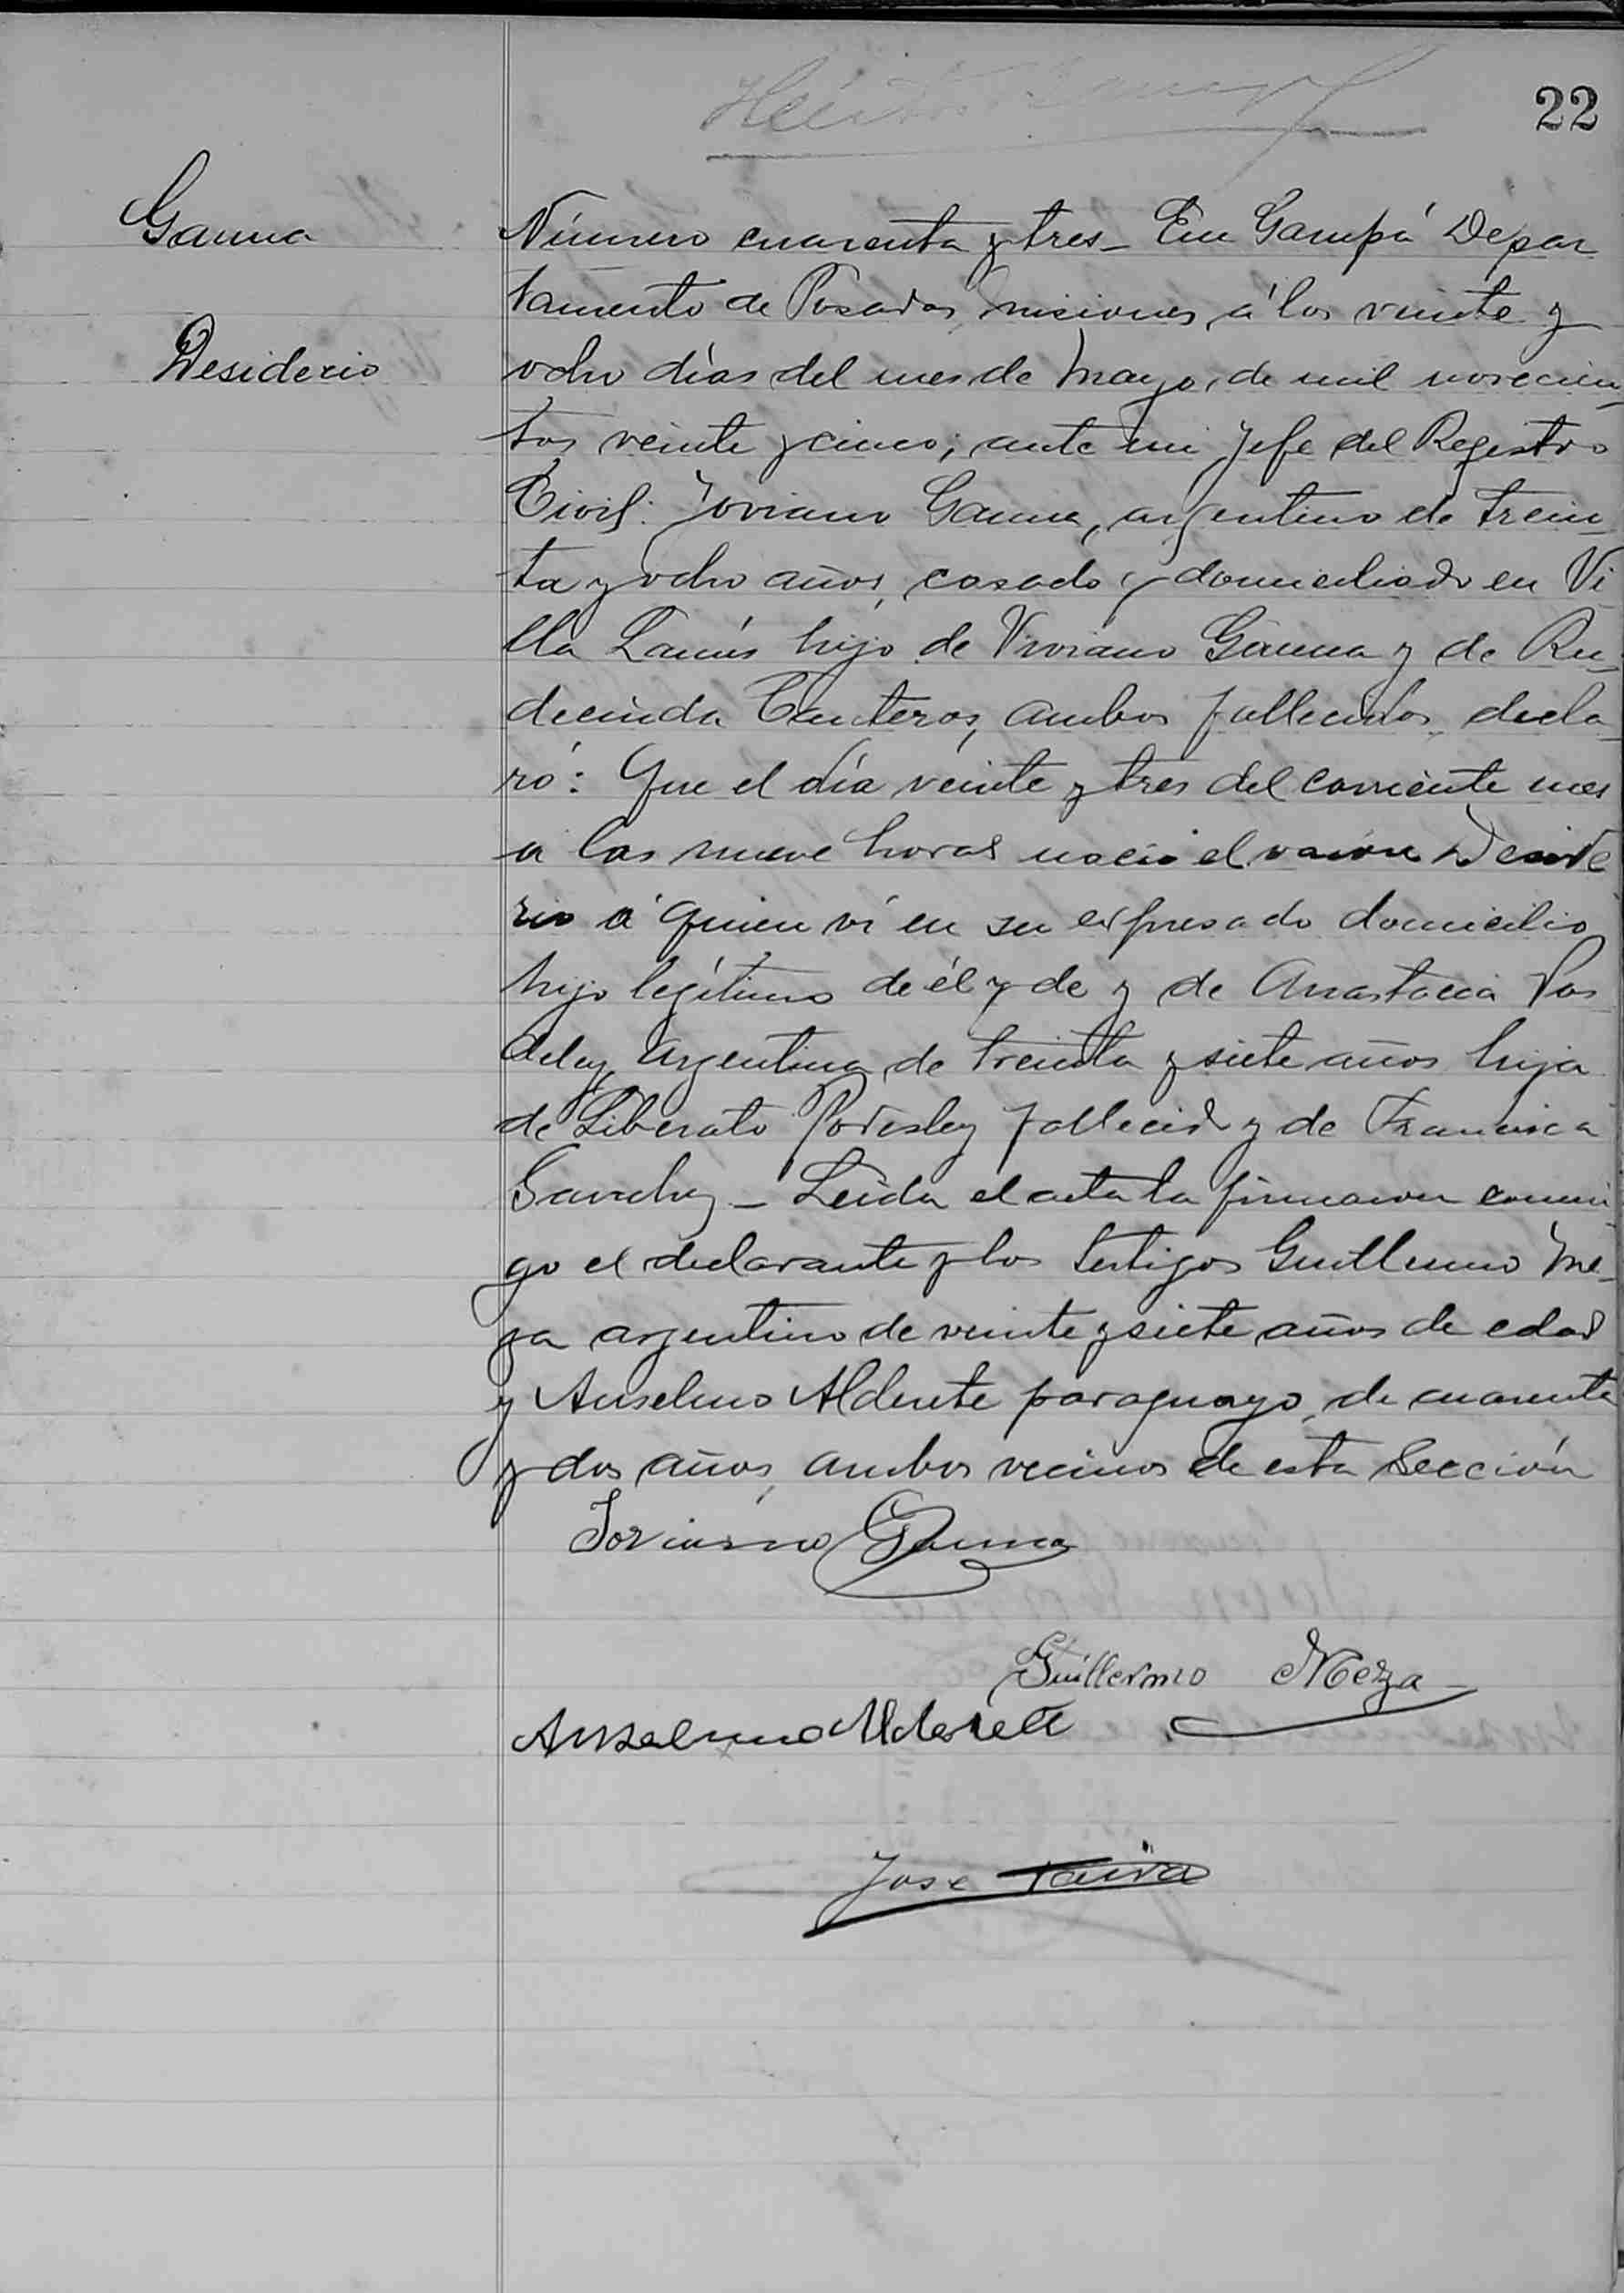 22
Gauna
Desiderio
Número cuarenta y tres_ En Garupá Depar
tamento de Posadas, misiones, á los veinte y
ocho días del mes de Mayo, de mil novecien_
tos veinte y cinco; ante mi Jefe del Registro
Civil: Joviano Gauna, argentino de trein_
ta y ocho años, casado y domiciliado en Vi
lla Lanús hijo de Viviano Gauna y de Ru_
decinda Canteros, ambos fallecidos, decla_
ró: Que el día veinte y tres del corriente mes
a las nueve horas nació el varón Deside
rio á quien ví en su expresado domicilio
hijo legítimo de él y de y de Anastacia
argentina de treinta y siete años hija
de Liberato fallecido y de Francisca
_ Leída el acta la firmaron conmi_
go el declarante y los testigos Guillermo Me_
za argentino de veinte y siete años de edad
y Anselmo Alderete paraguayo, de cuarenta
y dos años, ambos vecinos de esta Sección
Joviano Gauna
Guillermo Meza
Anselmo Alderete
Jose Paiva